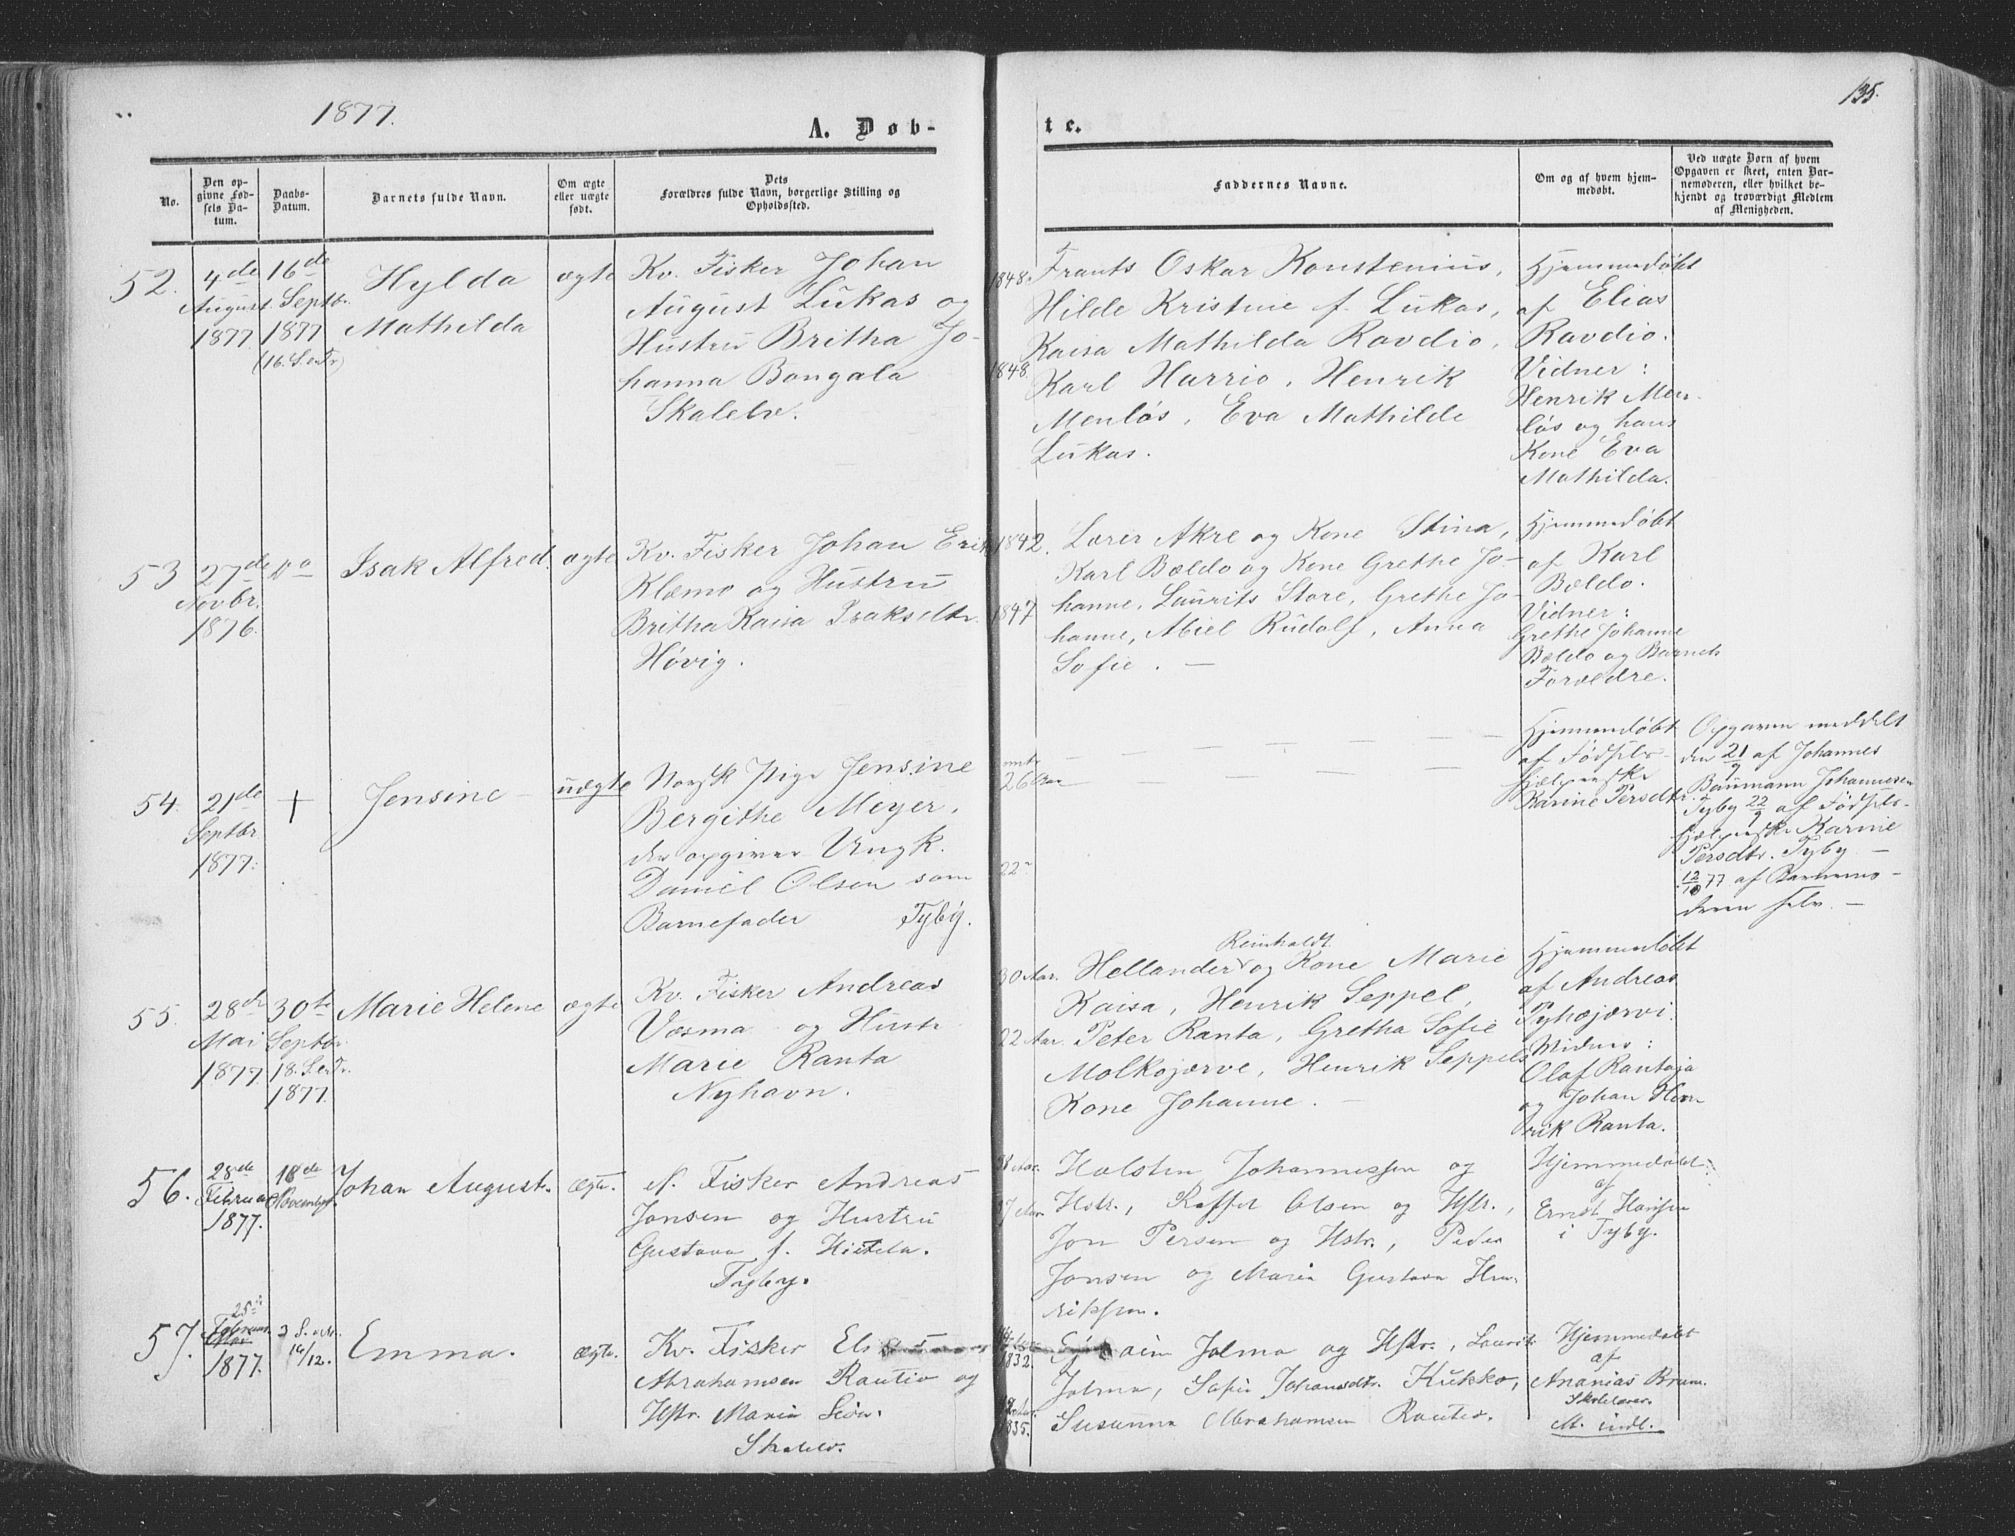 1877.
135.
A. Døb-
te.
No.
Den op-
givne Fød-
sels Da-
tum.
Daabs-
Datum.
Barnets fulde Navn.
Om ægte
eller uægte
født.
Dets
Forældres fulde Navn, borgerlige Stilling og
Opholdssted.
Faddernes Navne.
Om og af hvem hjem-
medøbt.
Ved uægte Børn af hvem
Opgaven er skeet, enten Bar-
nemoderen, eller hvilket be-
kjendt og troværdigt Medlem
af Menigheden.
52.
4de
August.
1877
16de
Septbr.
1877
Hylda
Mathilda
ægte
Kv. Fisker Johan
August Lukas og
Hustru Britha Jo-
hanna Bongala
Skalelv.
1848.
1848
Frants Oskar Konstenius,
Hilde Kristine f. Lukas,
Kaisa Mathilda Ravdio,
Karl Harrio, Henrik
Menløs, Eva Mathilde
Lukas.
Hjemmedøbt
af Elias
Ravdio.
Vidner:
Henrik Men-
løs og hans
Kone Eva
Mathilda.
53
27de
Novbr.
1876.
Isak Alfred.
ægte
Kv. Fisker Johan Erik
Klæmo og Hustru
Britha Kaisa Isaksdtr.
Høvig.
1842.
1847
Lærer Akre og Kone Stina,
Karl Bældo og Kone Grethe Jo-
hanne, Laurits Store, Grethe Jo-
hanne, Abiel Rudolf, Anna
Sofie. —
Hjemmedøbt
af Karl
Bældo.
Vidner:
Grethe Johanne
Bældo og Barnets
Forældre.
54.
21de
Septbr.
1877.
+
Jensine
uægte
Norsk Pige Jensine
Bergithe Meyer,
der opgiver Ungk.
Daniel Olsen som
Barnefader Tyby.
26 Aar
22
Hjemmedøbt
af Fødsels-
hjælperske
Karine Persdtr.
Opgaven meddelt
den 21/9 af Johannes
Baumann Johannesen
Tyby 22/9 af Fødsels-
hjælperske Karine
Persdtr. Tyby —
12/10 77 af Barnemo-
deren selv. —
55.
28de
Mai
1877.
30te
Septbr.
1877.
Marie Helene
ægte
Kv. Fisker Andreas
Væsma og Hustr.
Marie Ranta
Nyhavn.
30 Aar.
22 Aar.
Reinholdt
Hellander og Kone Marie
Kaisa, Henrik Seppel,
Peter Ranta, Gretha Sofie
Molkojærve, Henrik Seppels
Kone Johanne. —
Hjemmedøbt
af Andreas
Pyhæjærvi.
Vidner:
Olaf Rantaja
og Johan Hen-
rik Ranta.
56.
28de
Februar
1877.
18de
Novembr.
Johan August.
ægte.
N. Fisker Andreas
Jonsen og Hustru
Gustava f. Hietela.
Tyby.
Halstin Johannessen og
Hstr., Olsen og Hstr.,
Jon Persen og Hstr., Peder
Jonsen og Maria Gustava Hen-
riksen.
Hjemmedøbt
af
Ernst Hansen
i Tyby.
57.
1877.
Emma.
ægte.
Kv. Fisker
Abrahamsen Rautio og
Hstr. Maria
Skalelv.
1832.
1835.
Jolma og Hstr., Laurits
Jolma, Sofie Johansdtr. Kukko,
Susanna Abrahamsen Rautio.
Hjemmedøbt
af
Ananias Brun.
Skolelærer.
M. indl.